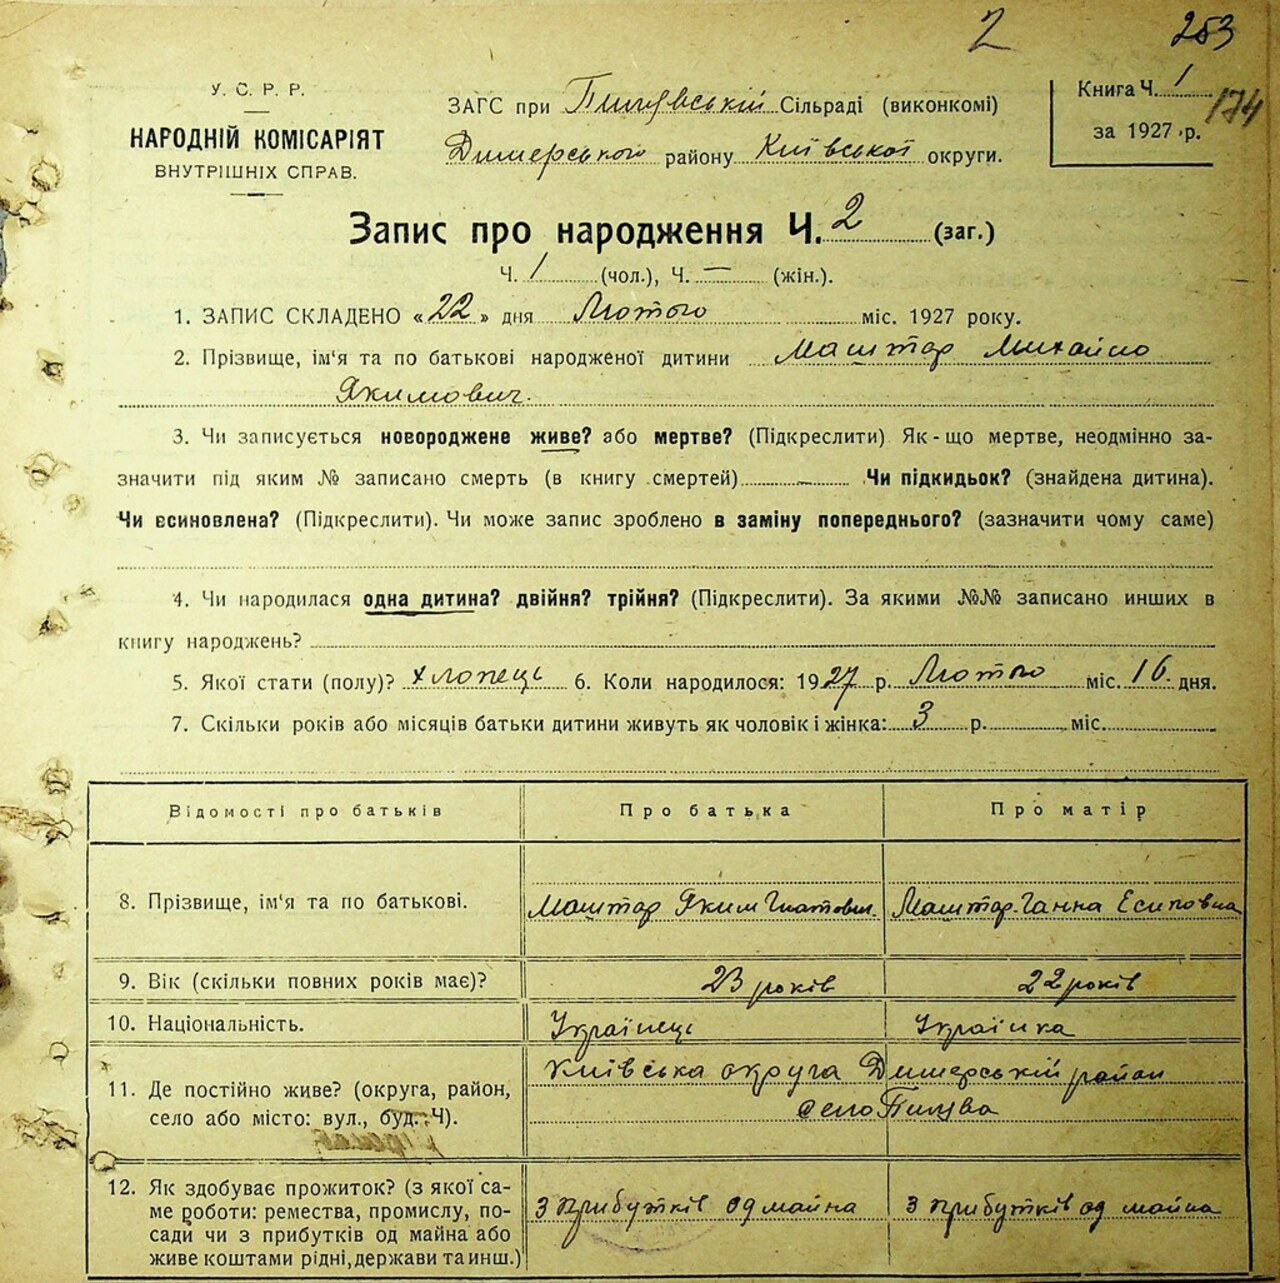 2 253
У. С. Р. Р.
НАРОДНІЙ КОМІСАРІЯТ
ВНУТРІШНІХ СПРАВ.
ЗАГС при Пилявській Сільраді (виконкомі)
Димерського району Київської округи.
Книга Ч. 1
174
за 1927 р.
Запис про народження Ч. 2 (заг.)
Ч. 1 (чол.), Ч. — (жін.).
1. ЗАПИС СКЛАДЕНО «22» дня Лютого міс. 1927 року.
2. Прізвище, ім'я та по батькові народженої дитини Маштар Михайло
Якимович.
3. Чи записується новороджене живе? або мертве? (Підкреслити) Як-що мертве, неодмінно за-
значити під яким № записано смерть (в книгу смертей) — Чи підкидьок? (знайдена дитина).
Чи всиновлена? (Підкреслити). Чи може запис зроблено в заміну попереднього? (зазначити чому саме)
4. Чи народилася одна дитина? двійня? трійня? (Підкреслити). За якими №№ записано инших в
книгу народжень?
5. Якої стати (полу)? хлопець 6. Коли народилося: 1927 р. Лютого міс. 16. дня.
7. Скільки років або місяців батьки дитини живуть як чоловік і жінка: 3 р. міс.
Відомості про батьків Про батька Про матір
8. Прізвище, ім'я та по батькові. Маштар Яким Гнатович. Маштар Ганна Есиповна
9. Вік (скільки повних років має)? 23 років 22 років
10. Національність. Українець Українка
11. Де постійно живе? (округа, район,
село або місто: вул., буд. Ч).
Київська округа Димерській район
село Пилява
12. Як здобуває прожиток? (з якої са-
ме роботи: ремества, промислу, по-
сади чи з прибутків од майна або
живе коштами рідні, держави та инш.)
З прибутків од майна З прибутків од майна